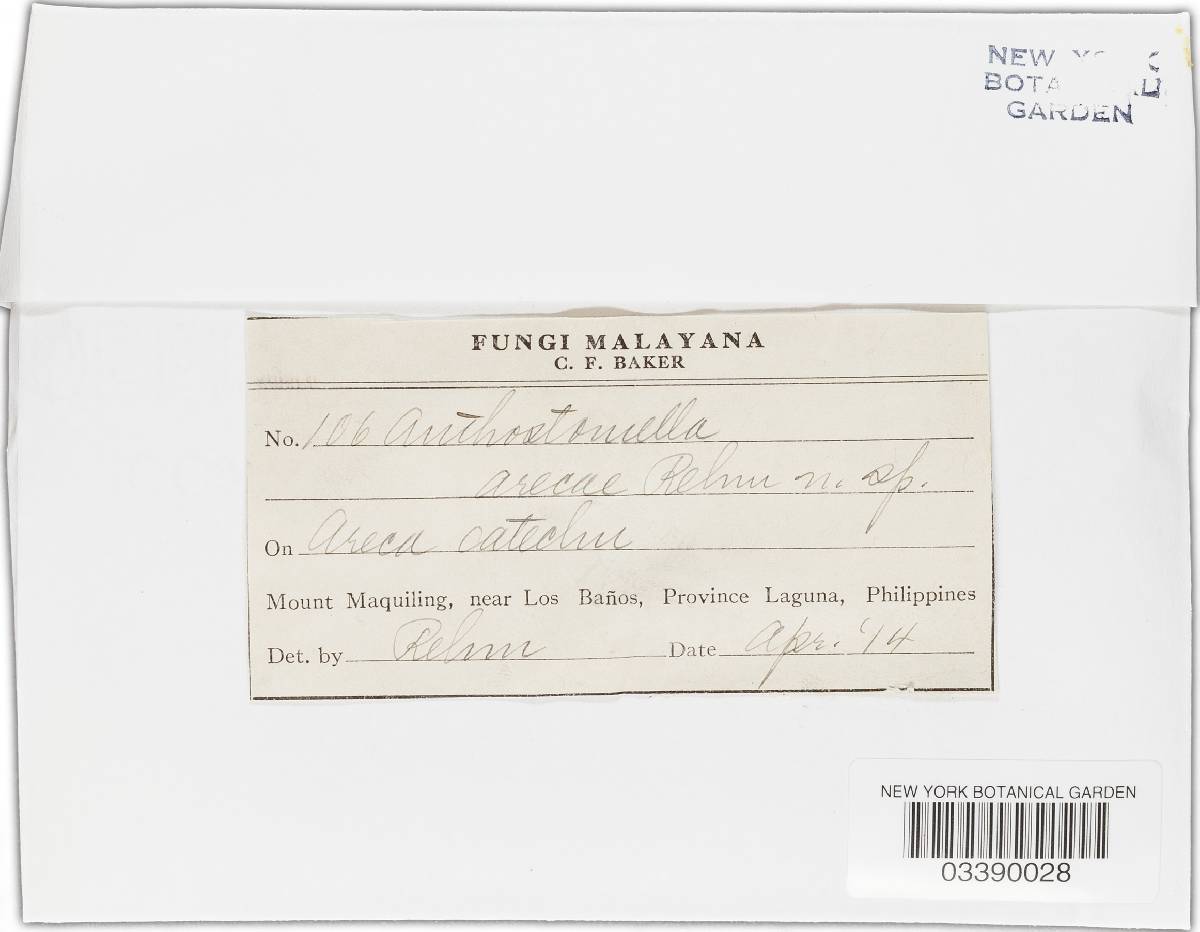 NEW
BOTA
GARDEN
FUNGI MALAYANA
C. F. BAKER
No. 106 Anthostomella
arecae Rehm n. sp.
On Areca catechu
Mount Maquiling, near Los Baños, Province Laguna, Philippines
Det. by Rehm Date Apr. '14
NEW YORK BOTANICAL GARDEN
03390028